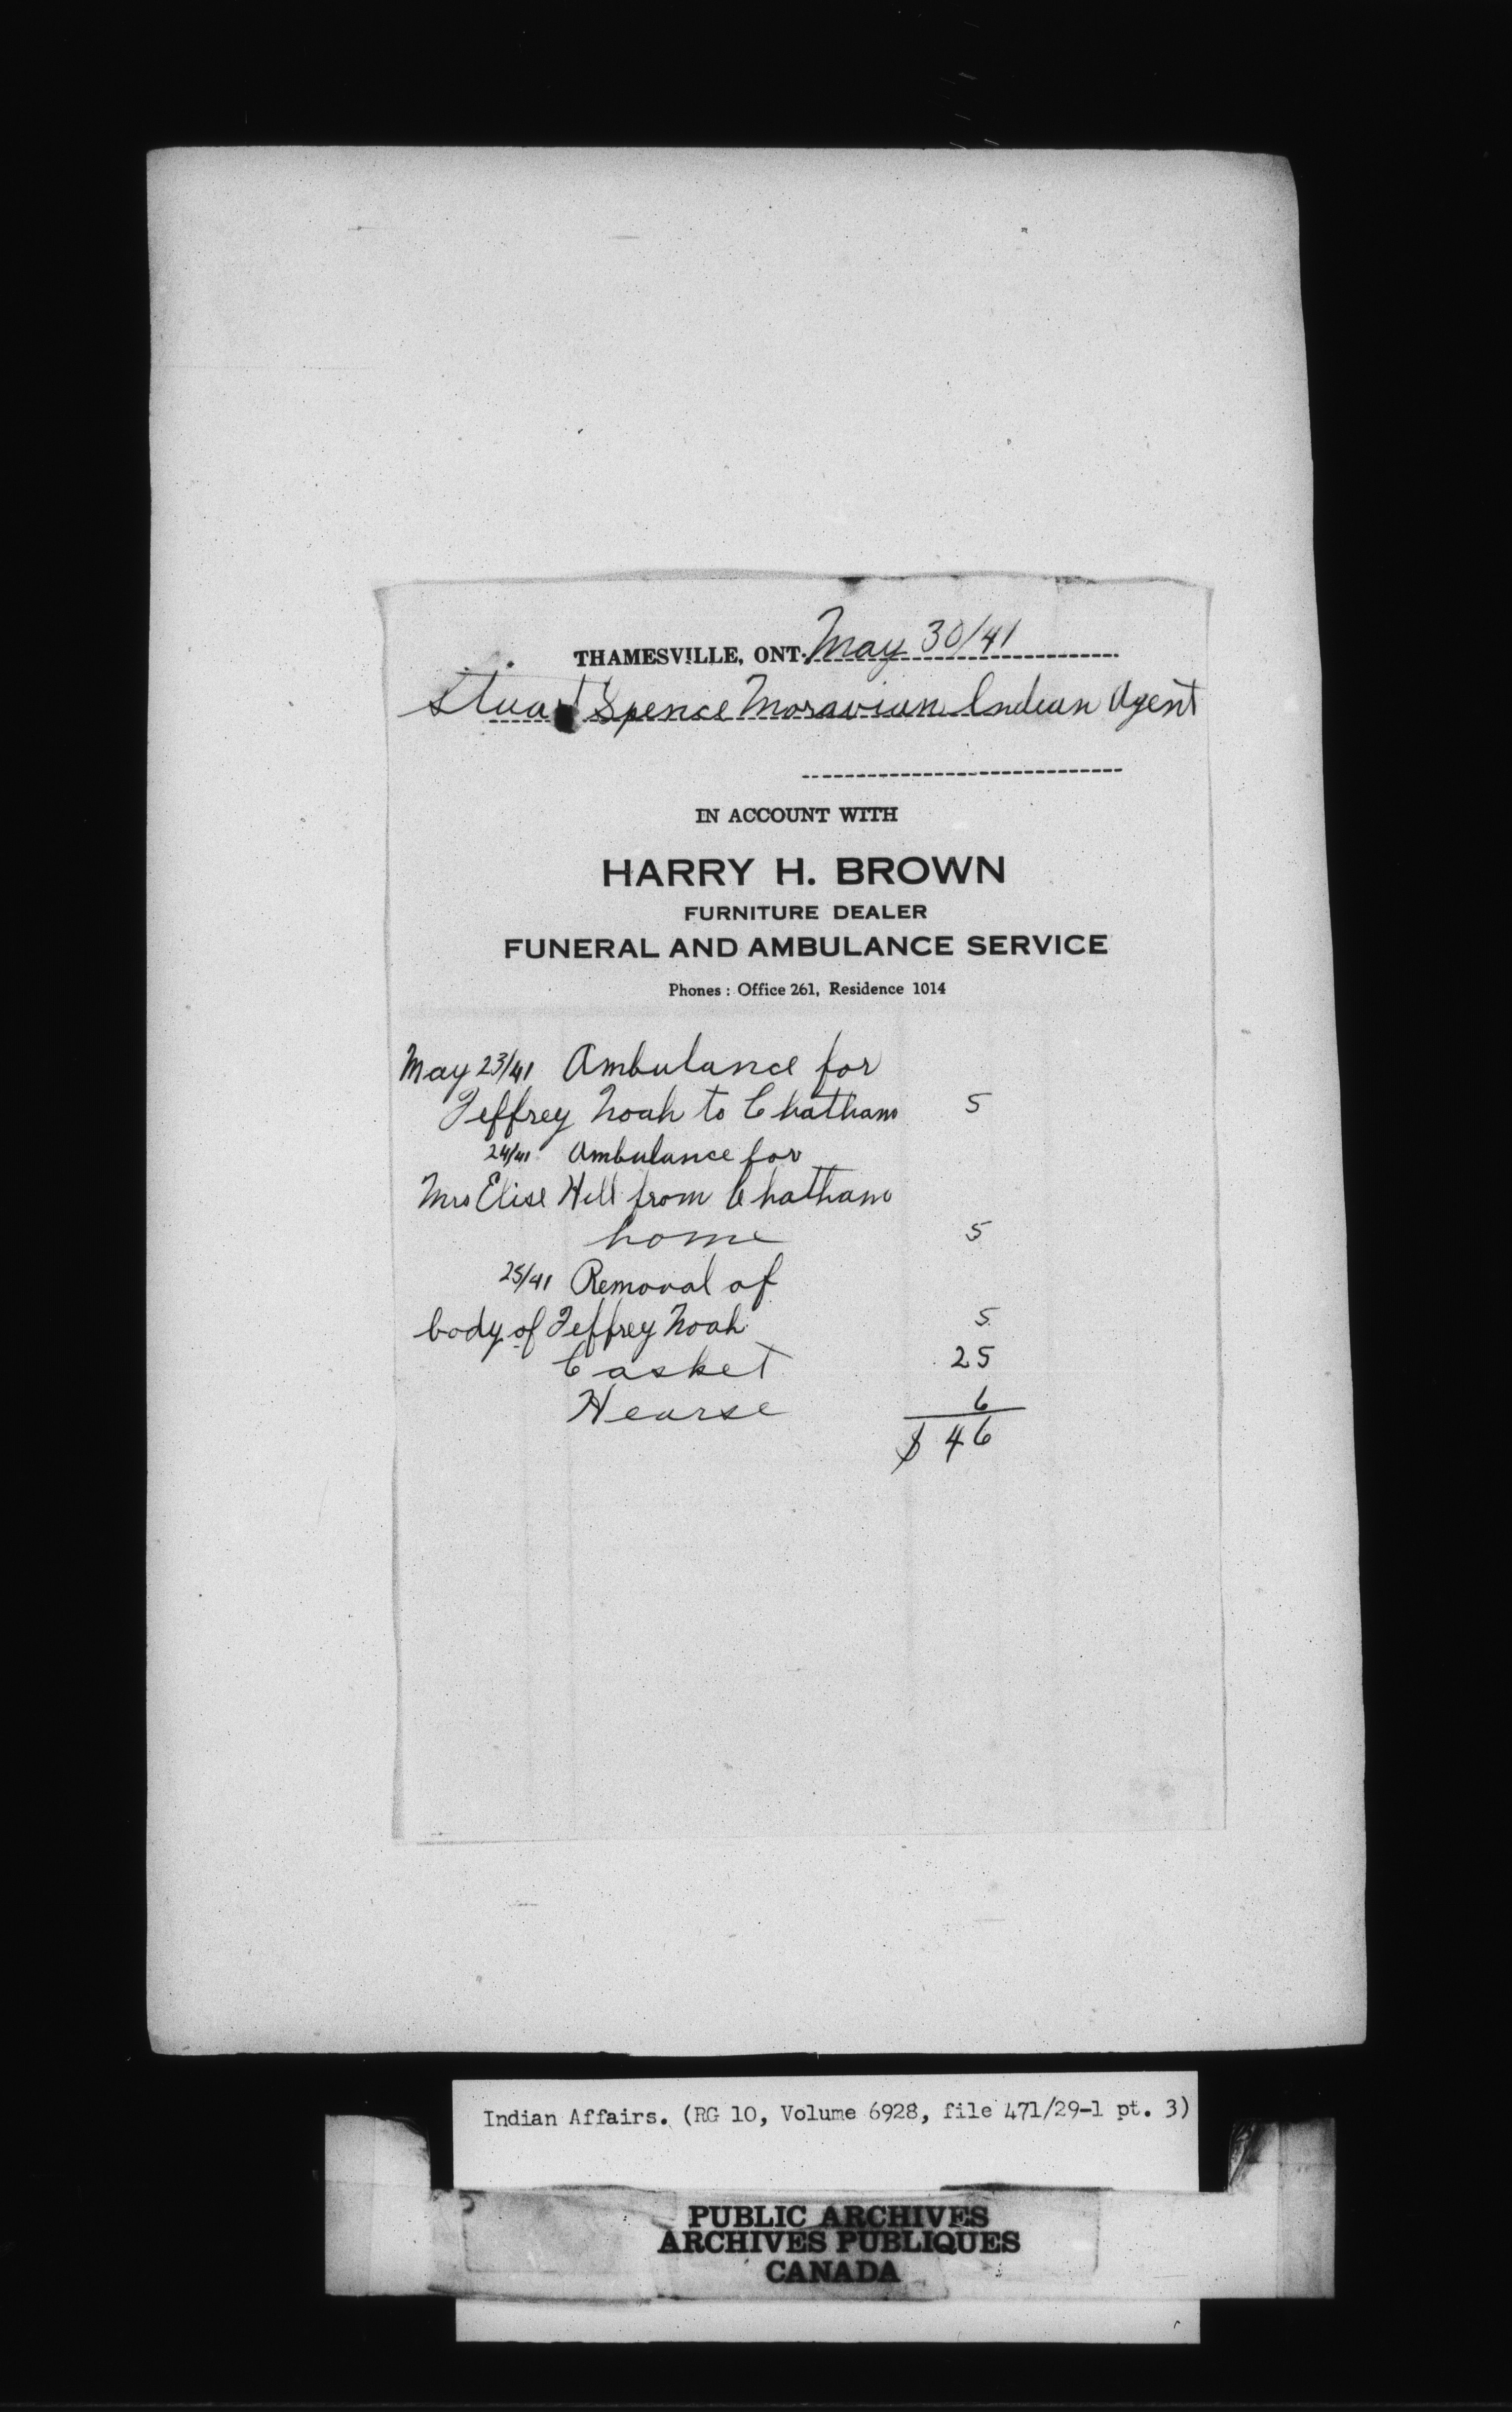 THAMESVILLE, ONT. May 30/41
Stuart Spence Moravian Indian Agent
IN ACCOUNT WITH
HARRY H. BROWN
FURNITURE DEALER
FUNERAL AND AMBULANCE SERVICE
Phones : Office 261, Residence 1014
May 23/41 Ambulance for
Jeffrey Noah to Chatham 5
24/41 Ambulance for
Mrs Elise Hill from Chatham
home 5
25/41 Removal of
body of Jeffrey Noah 5
Casket 25
Hearse 6
$ 46
Indian Affairs. (RG 10, Volume 6928, file 471/29-1 pt. 3)
PUBLIC ARCHIVES
ARCHIVES PUBLIQUES
CANADA